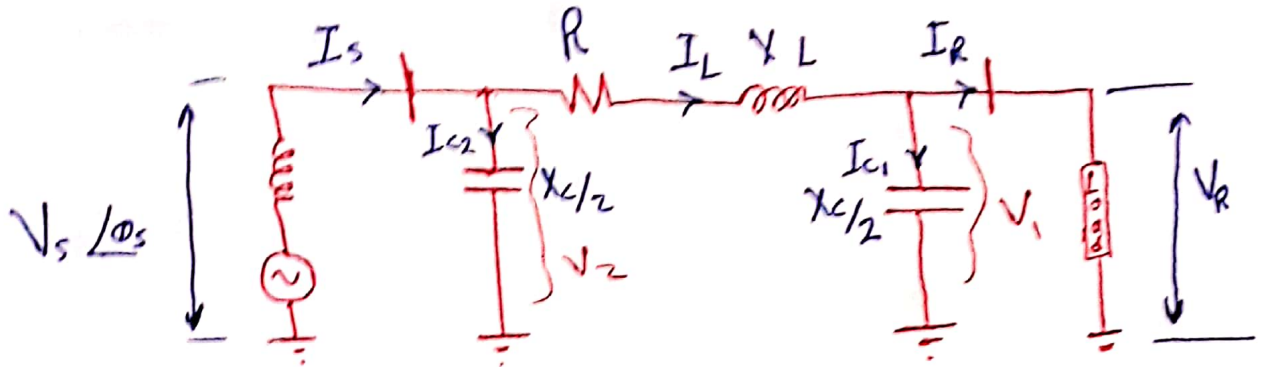 Is
R
IL
XL
IR
Ic2
Xc/2
V2
Ic1
Xc/2
V1
Vs ∠Φs
Load
VR